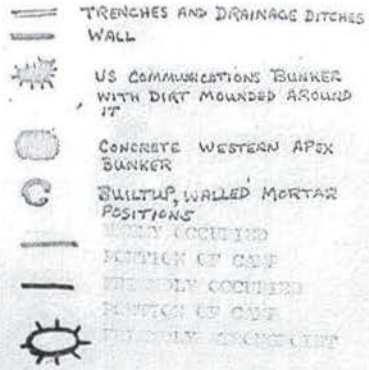 TRENCHES AND DRAINAGE DITCHES
WALL
US COMMUNICATIONS BUNKER
WITH DIRT MOUNDED AROUND
IT
CONCRETE WESTERN APEX
BUNKER
BUILTUP, WALLED MORTAR
POSITIONS
OCCUPIED
PORTION OF CAMP
FRIENDLY OCCUPIED
PORTION OF CAMP
FRIENDLY STRONGPOINT